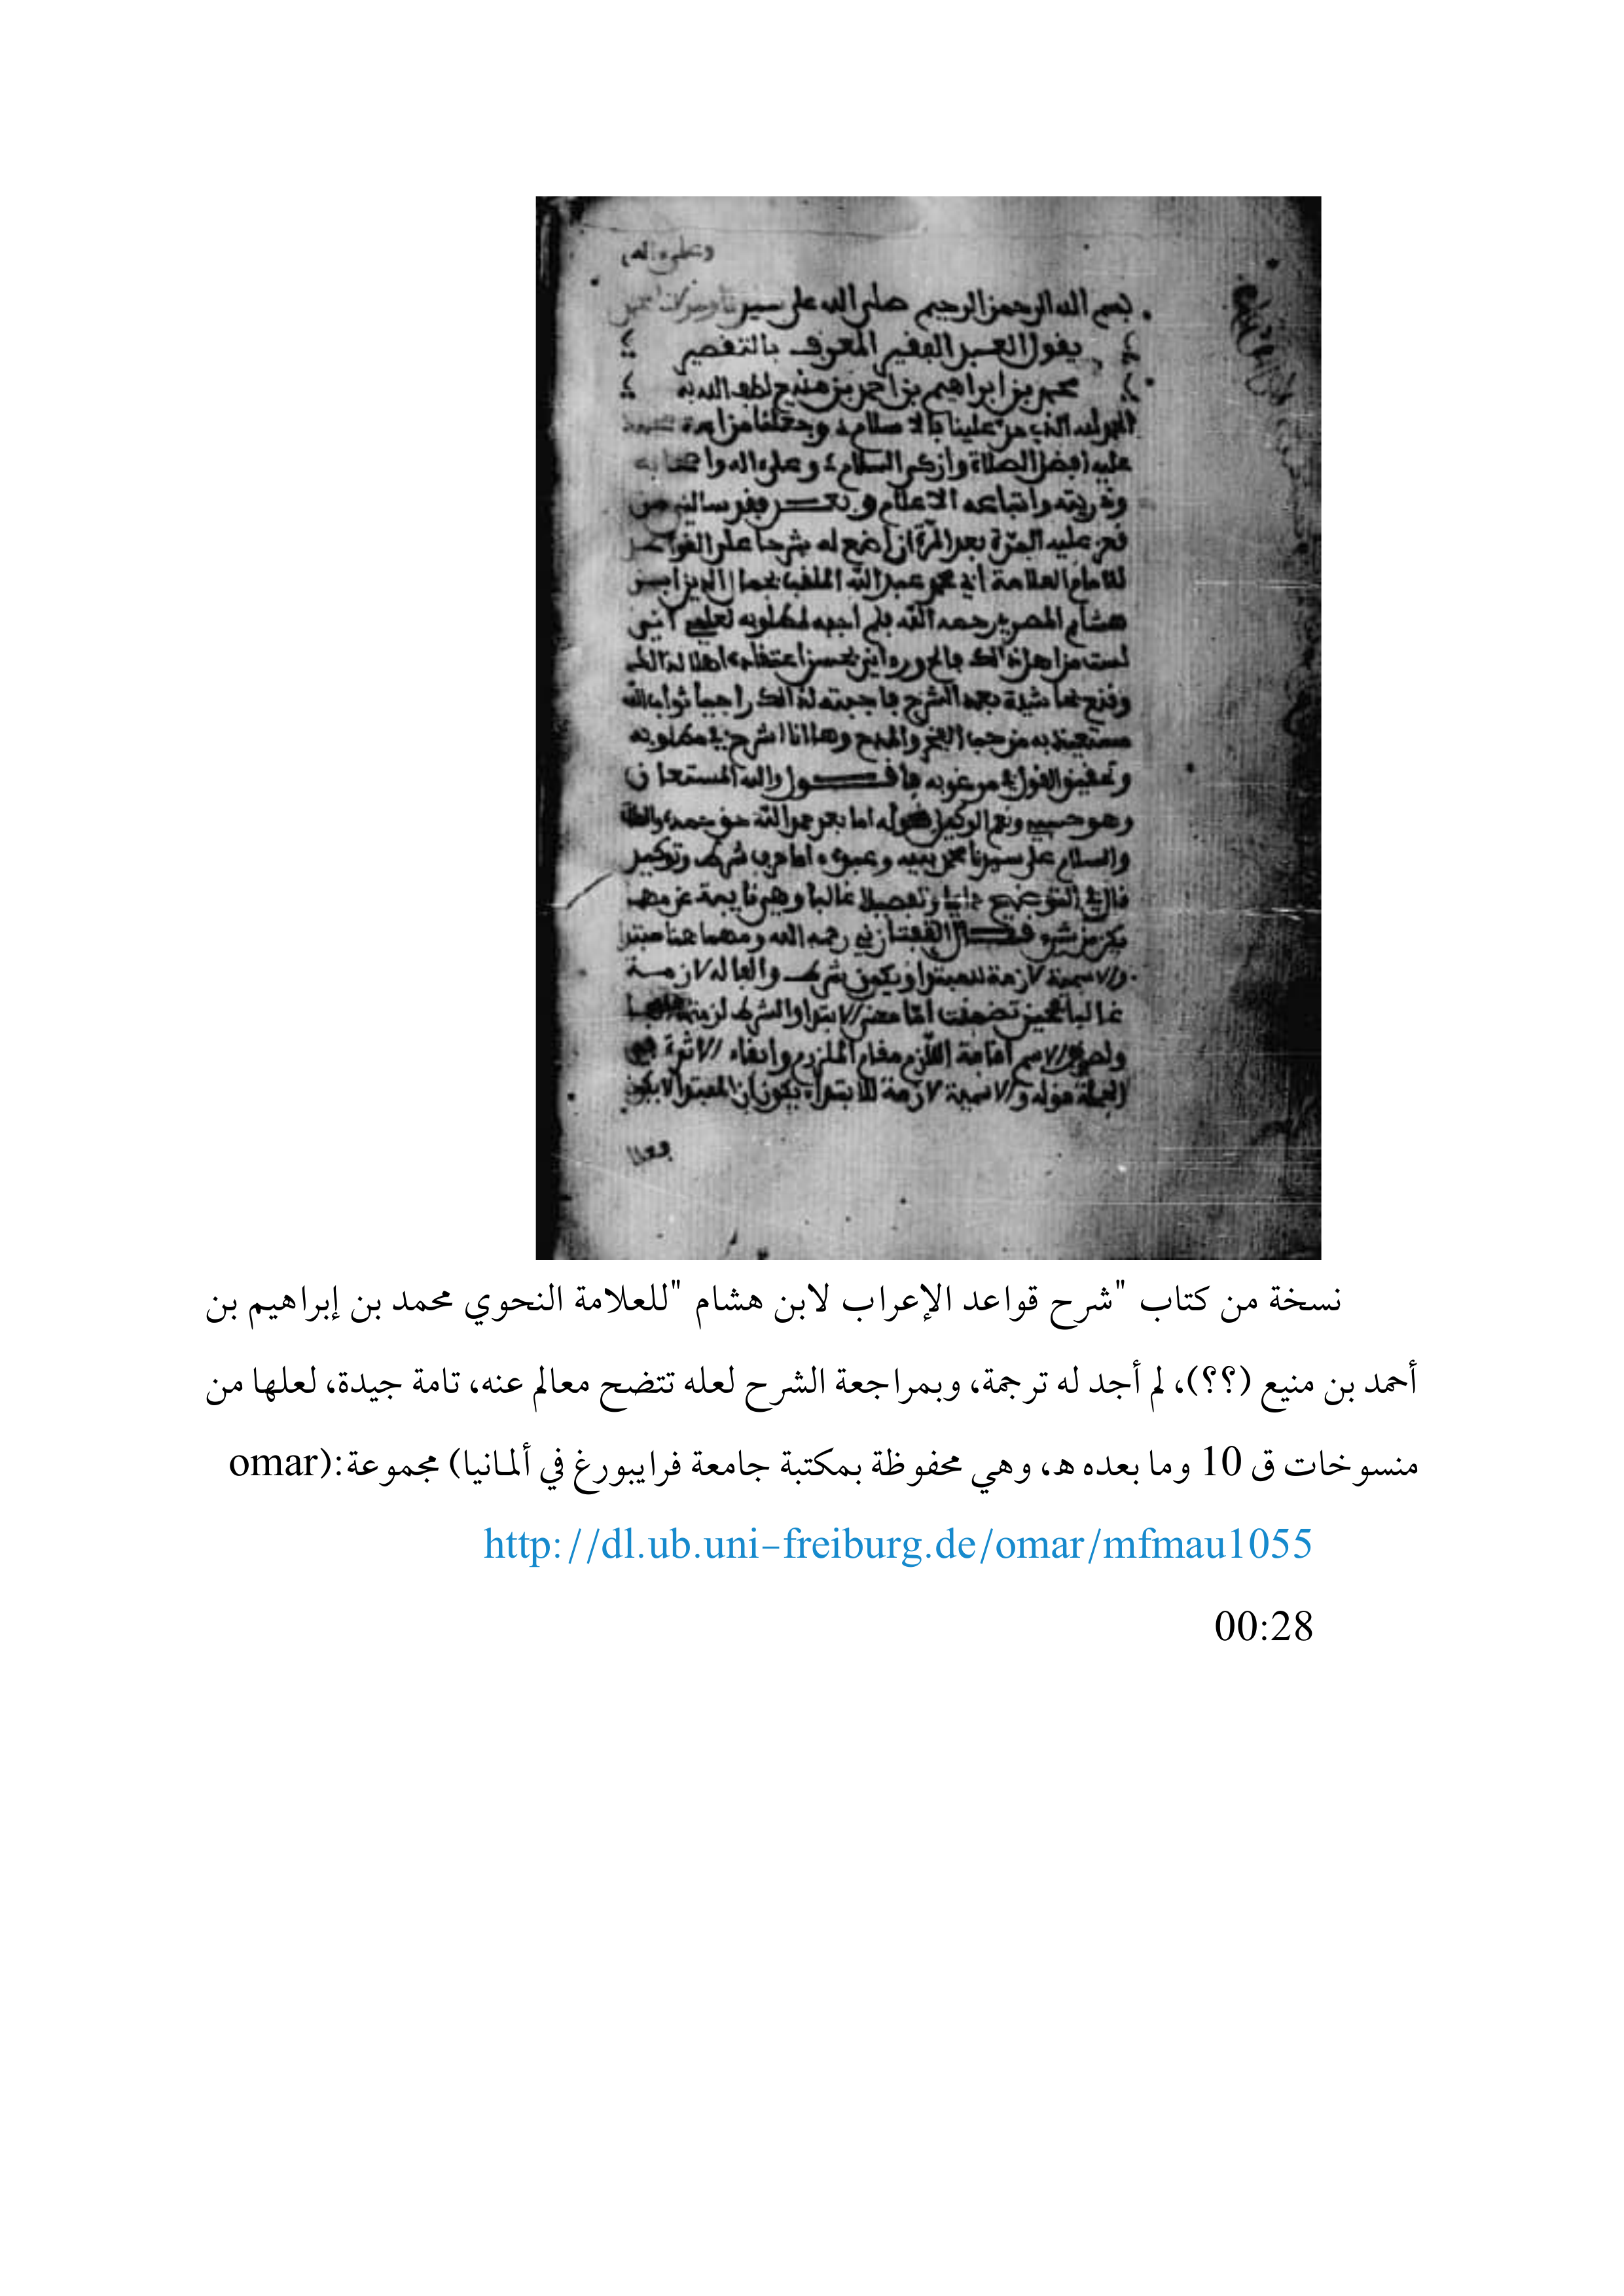 وعلى اله
بسم الله الرحمن الرحيم صلى الله على سيدنا
يقول العبد الفقير المعروف بالتقصير
محمد بن ابراهيم بن احمد بن لطف الله به
الحمد لله الذي من علينا بالاسلام وجعلنا من امة
عليه افضل الصلاة وازكى السلام وعلى اله واصحابه
وذريته واتباعه الاعلام وبعد فقد سالني من
عليه المرة بعد المرة ان اضع له شرحا على القواعد
للامام العلامة ابي محمد عبد الله الملقب بجمال الدين ابن
هشام المصري رحمه الله فلم اجبه لمطلوبه لعلمي انني
لست من اهل ذالك
الشرح فاجبته لذالك راجيا ثواب الله
وها انا اشرع في مطلوبه
وتحقيق القول في مرغوبه فاقول والله المستعان
وهو حسبي ونعم الوكيل قوله اما بعد حمد الله حق حمده
والسلام على سيدنا محمد نبيه وعبده اما حرف شرط وتوكيد
قال في التوضيح وتفصيل غالبا وهي نايبة عن مهما
يكن من شيء قال التفتازاني رحمه الله ومهما هنا مبتدا
والاسمية لازمة للمبتدا ويكون شرط والفا له لازمة
غالبا فحين تضمنت اما معنى الابتدا والشرط لزمتها
ولصوق الاسم اقامة اللازم مقام الملزوم وابقاء لاثره في
الجملة قوله والاسمية لازمة للابتداء يكون ان المبتدا لا يكون
فعلا
نسخة من كتاب "شرح قواعد الإعراب لابن هشام "للعلامة النحوي محمد بن إبراهيم بن
أحمد بن منيع (؟؟)، لم أجد له ترجمة، وبمراجعة الشرح لعله تتضح معالم عنه، تامة جيدة، لعلها من
منسوخات ق 10 وما بعده هـ، وهي محفوظة بمكتبة جامعة فرايبورغ في ألمانيا) مجموعة:(omar
http://dl.ub.uni-freiburg.de/omar/mfmau1055
00:28